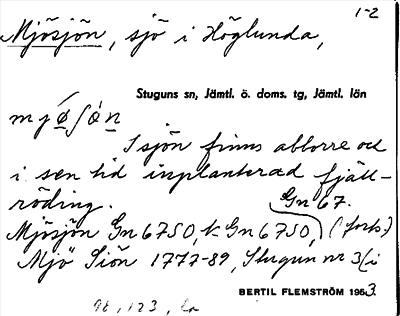 1-2
Mjösjön, sjö i Höglunda,
Stuguns sn, Jämtl. ö. doms. tg, Jämtl. län
I sjön finns abborre och
i sen tid inplanterad fjäll-
röding. Gn 67.
Mjösjön Gn 6750, k-Gn 6750, (forts.)
Mjö Siön 1777-89, Stugun nr 3(i
BERTIL FLEMSTRÖM 1953.